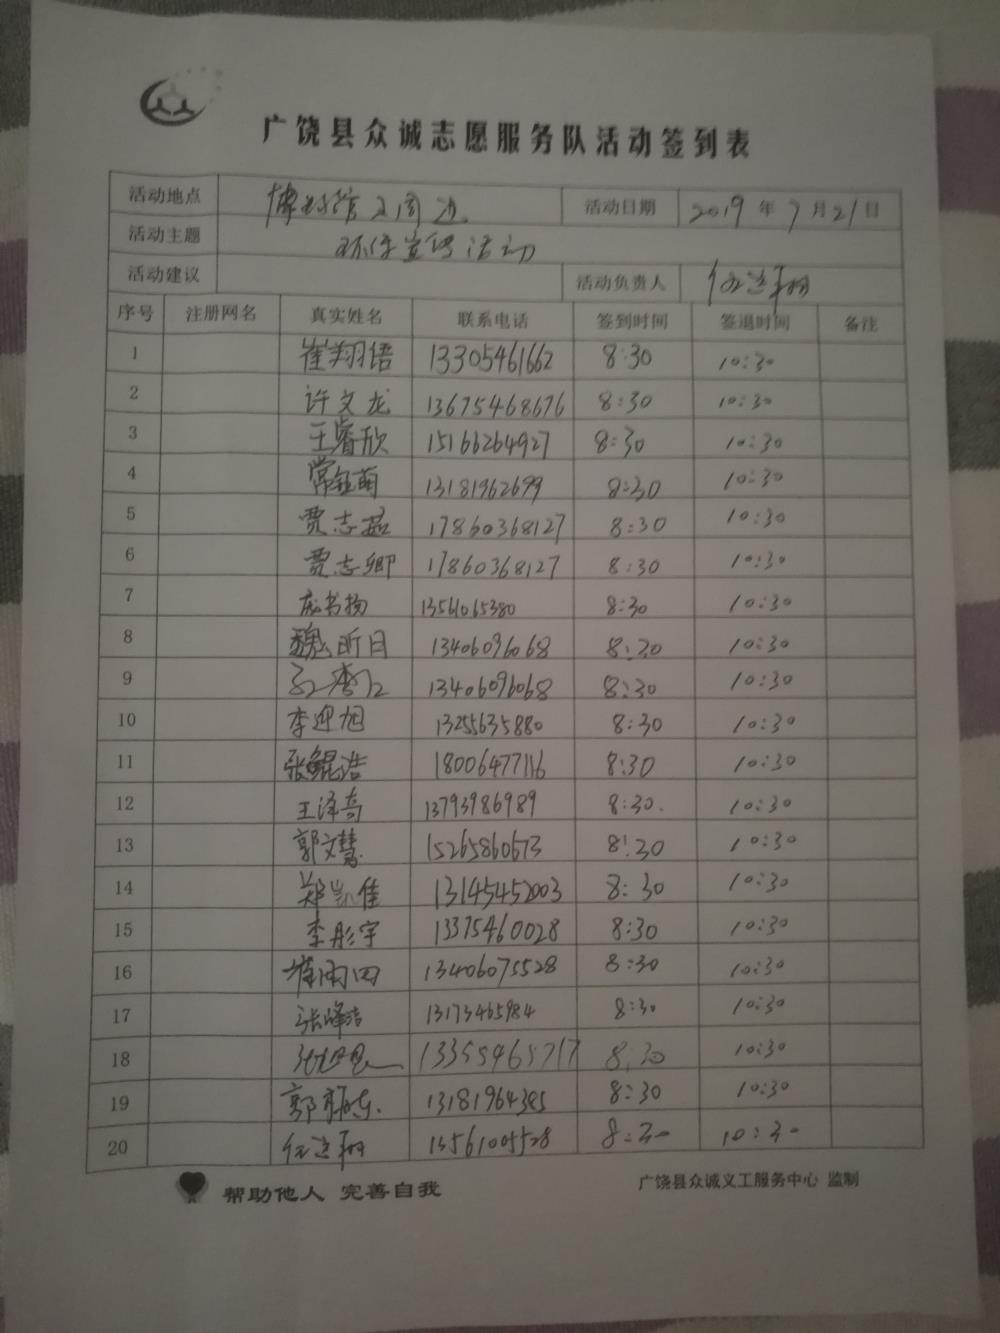 广饶县众诚志愿服务队活动签到表
活动地点 博物馆及周边 活动日期 2019年7月21日
活动主题 环保宣传活动
活动建议 活动负责人
序号 注册网名 真实姓名 联系电话 签到时间 签退时间 备注
1 崔翔语 13305461662 8:30 10:30
2 许文龙 13675468676 8:30 10:30
3 王睿欣 15166264927 8:30 10:30
4 常钰萌 13181962699 8:30 10:30
5 贾志 17860368127 8:30 10:30
6 贾志卿 17860368127 8:30 10:30
7 书扬 13561065380 8:30 10:30
8 魏昕目 13406096068 8:30 10:30
9 13406096068 8:30 10:30
10 李迎旭 13255635880 8:30 10:30
11 张鲲浩 18006477116 8:30 10:30
12 王泽奇 13793986989 8:30. 10:30
13 郭文慧 15265860673 8:30 10:30
14 郑凯佳 13145452003 8:30 10:30
15 李彤宇 13375460028 8:30 10:30
16 雨田 13406075528 8:30 10:30
17 张峰浩 13173465984 8:30 10:30
18 13355465717 8:30 10:30
19 郭 13181964385 8:30 10:30
20 13561005528 8:30 10:30
帮助他人 完善自我 广饶县众诚义工服务中心 监制